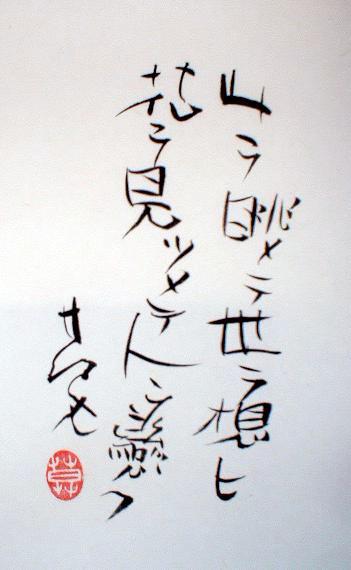 山ヲ眺メテ世ヲ想ヒ
花ヲ見ツメテ人ヲ戀フ